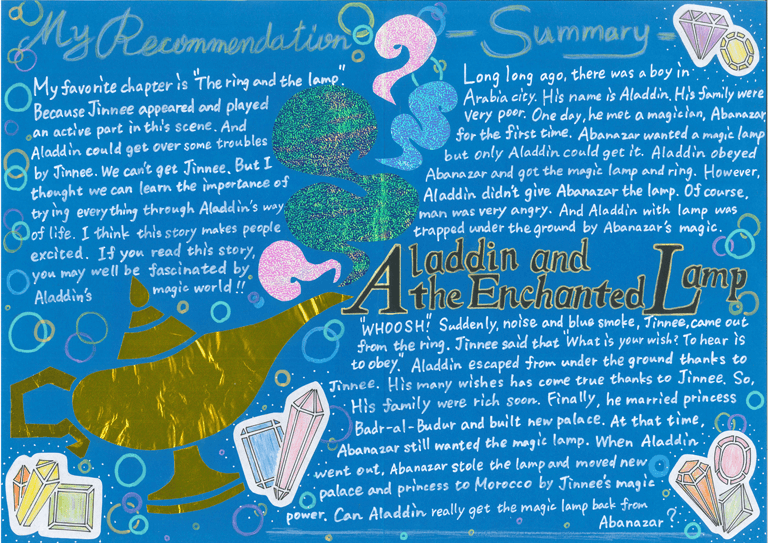 My Recommendation
My favorite chapter is "The ring and the lamp".
Because Jinnee appeared and played
an active part in this scene. And
Aladdin could get over some troubles
by Jinnee. We can't get Jinnee. But I
thought we can learn the importance of
trying everything through Aladdin's way
of life. I think this story makes people
excited. If you read this story,
you may well be fascinated by
Aladdin's magic world!!
Summary
Long long ago, there was a boy in
Arabia city. His name is Aladdin. His family were
very poor. One day, he met a magician, Abanazar,
for the first time. Abanazar wanted a magic lamp
but only Aladdin could get it. Aladdin obeyed
Abanazar and got the magic lamp and ring. However,
Aladdin didn't give Abanazar the lamp. Of course,
man was very angry. And Aladdin with lamp was
trapped under the ground by Abanazar's magic.
Aladdin and
the Enchanted Lamp
"WHOOSH!" Suddenly, noise and blue smoke, Jinnee, came out
from the ring. Jinnee said that "What is your wish? To hear is
to obey." Aladdin escaped from under the ground thanks to
Jinnee. His many wishes has come true thanks to Jinnee. So,
His family were rich soon. Finally, he married princess
Badr-al-Budur and built new palace. At that time,
Abanazar still wanted the magic lamp. When Aladdin
went out, Abanazar stole the lamp and moved new
palace and princess to Morocco by Jinnee's magic
power. Can Aladdin really get the magic lamp back from
Abanazar?